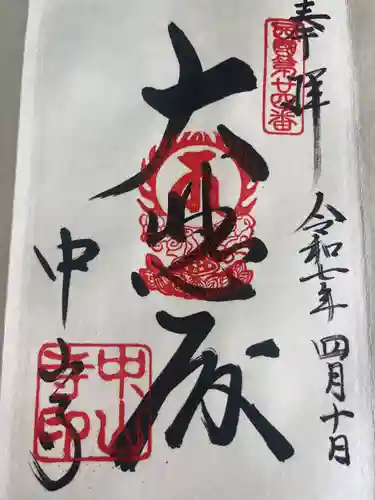 奉拝
西國第廿四番
令和七年 四月十日
大悲殿
中山寺
中山寺印